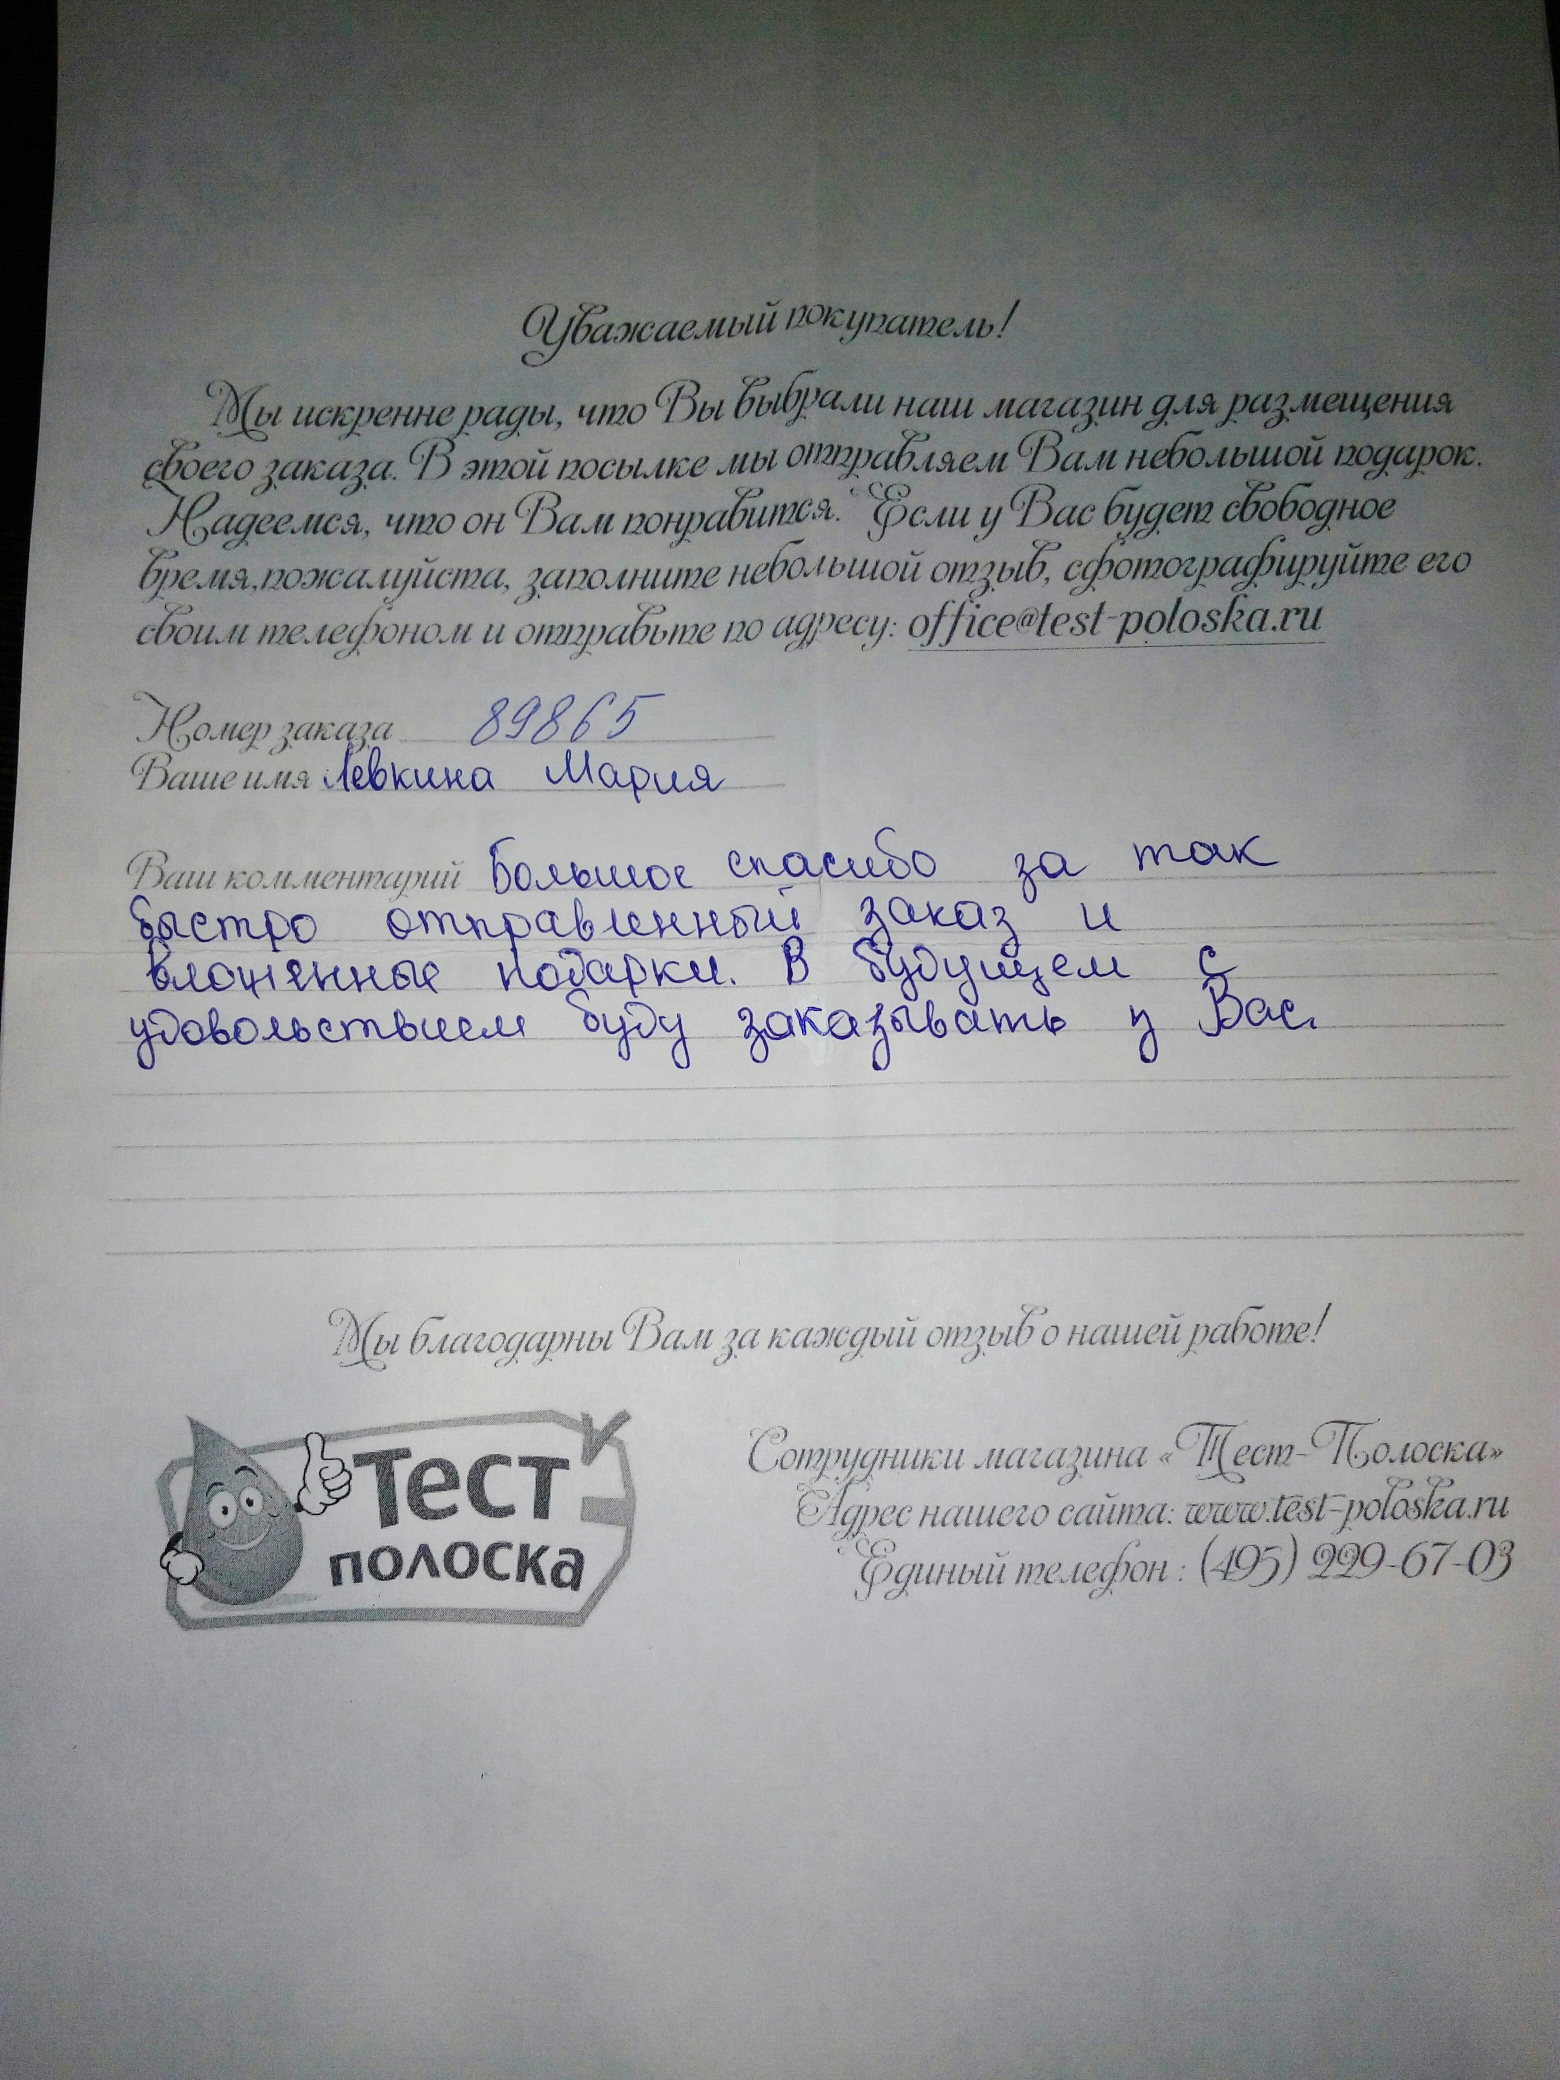 Уважаемый покупатель!
Мы искренне рады, что Вы выбрали наш магазин для размещения
своего заказа. В этой посылке мы отправляем Вам небольшой подарок.
Надеемся, что он Вам понравится. Если у Вас будет свободное
время,пожалуйста, заполните небольшой отзыв, сфотографируйте его
своим телефоном и отправьте по адресу: office@test-poloska.ru
Номер заказа 89865
Ваше имя Левкина Мария
Ваш комментарий Большое спасибо за так
быстро отправленный заказ и
вложенные подарки. В будущем с
удовольствием буду заказывать у Вас.
Мы благодарны Вам за каждый отзыв о нашей работе!
Тест
полоска
Сотрудники магазина «Тест-Полоска»
Адрес нашего сайта: www.test-poloska.ru
Единый телефон : (495) 229-67-03